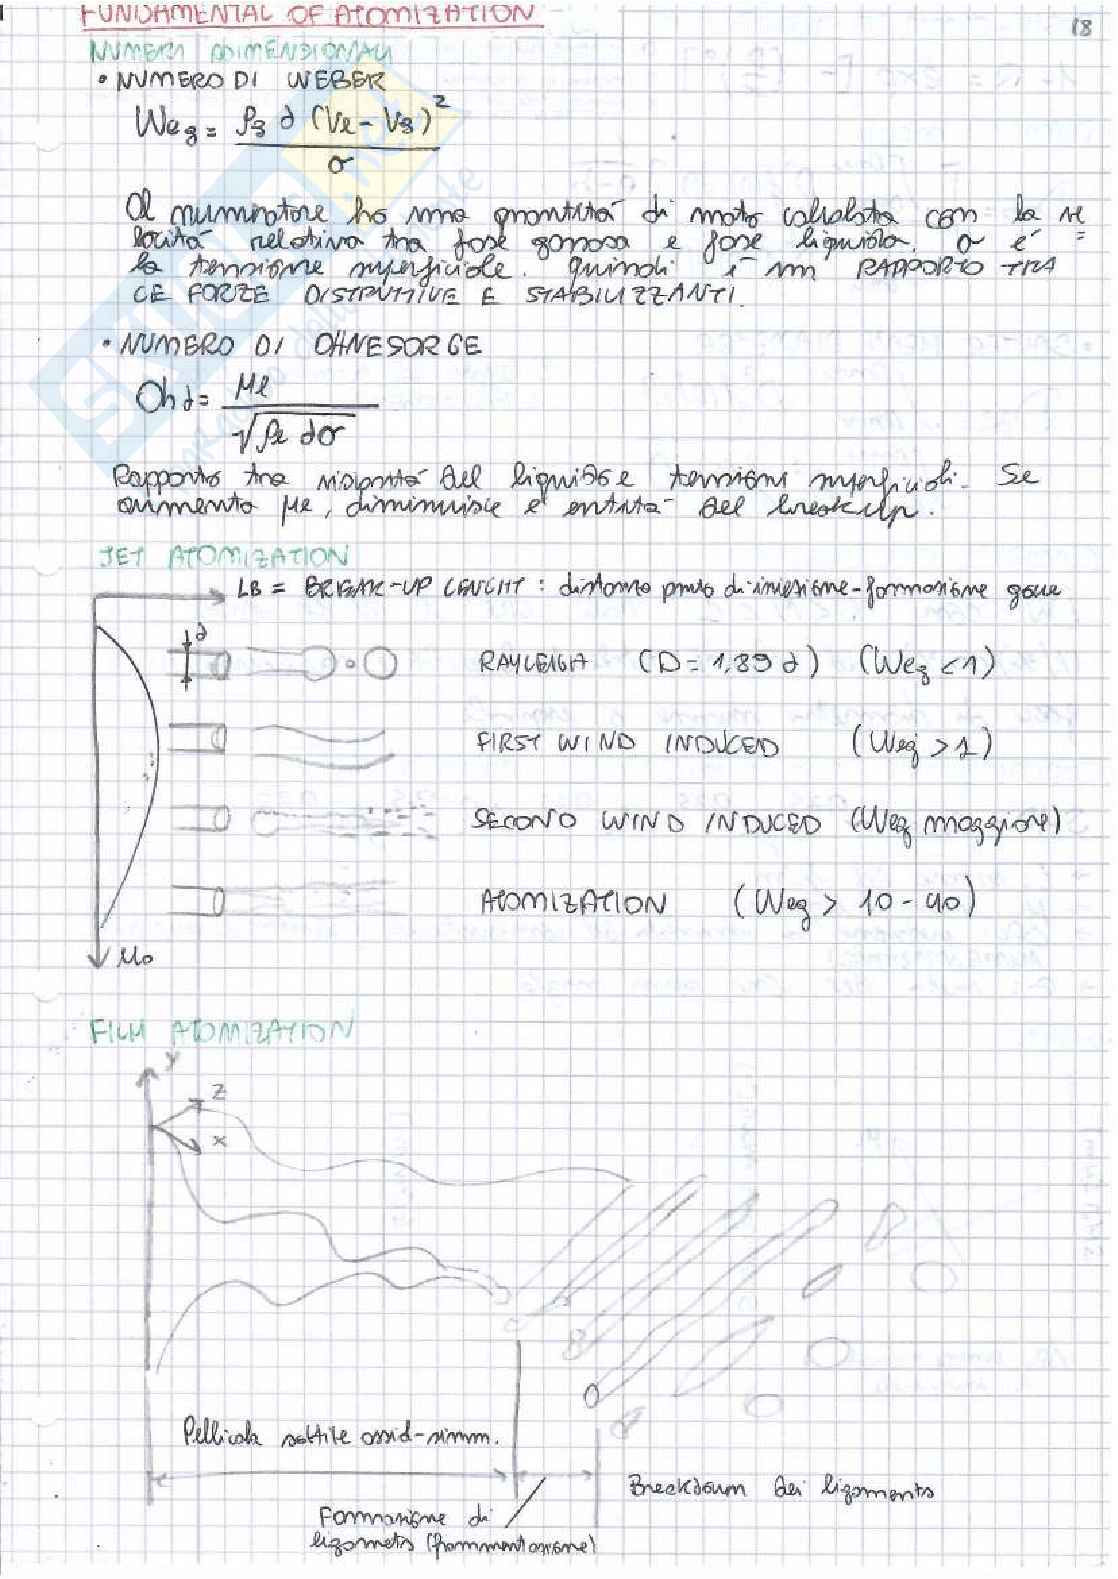 FUNDAMENTAL OF ATOMIZATION
18
NUMERI ADIMENSIONALI
• NUMERO DI WEBER
We_g = ρ_g d (V_l - V_g)^2 / σ
Al numeratore ho una quantità di moto calcolata con la ve
locità relativa tra fase gassosa e fase liquida. σ è =
la tensione superficiale. Quindi è un RAPPORTO TRA
LE FORZE DISTRUTTIVE E STABILIZZANTI.
• NUMERO DI OHNESORGE
Oh_d = μ_l / √(ρ_l d σ)
Rapporto tra viscosità del liquido e tensioni superficiali. Se
aumento μ_l, diminuisce l'entità del breakup.
JET ATOMIZATION
LB = BREAK-UP LENGHT : distanza punto di iniezione-formazione gocce
d
RAYLEIGH (D = 1,89 d) (We_g < 1)
FIRST WIND INDUCED (We_g > 1)
SECOND WIND INDUCED (We_g maggiore)
ATOMIZATION (We_g > 10 - 40)
μ_0
FILM ATOMIZATION
y
z
x
Pellicola sottile assial-simm.
Breakdown dei ligaments
Formazione di
ligaments (frammentazione)